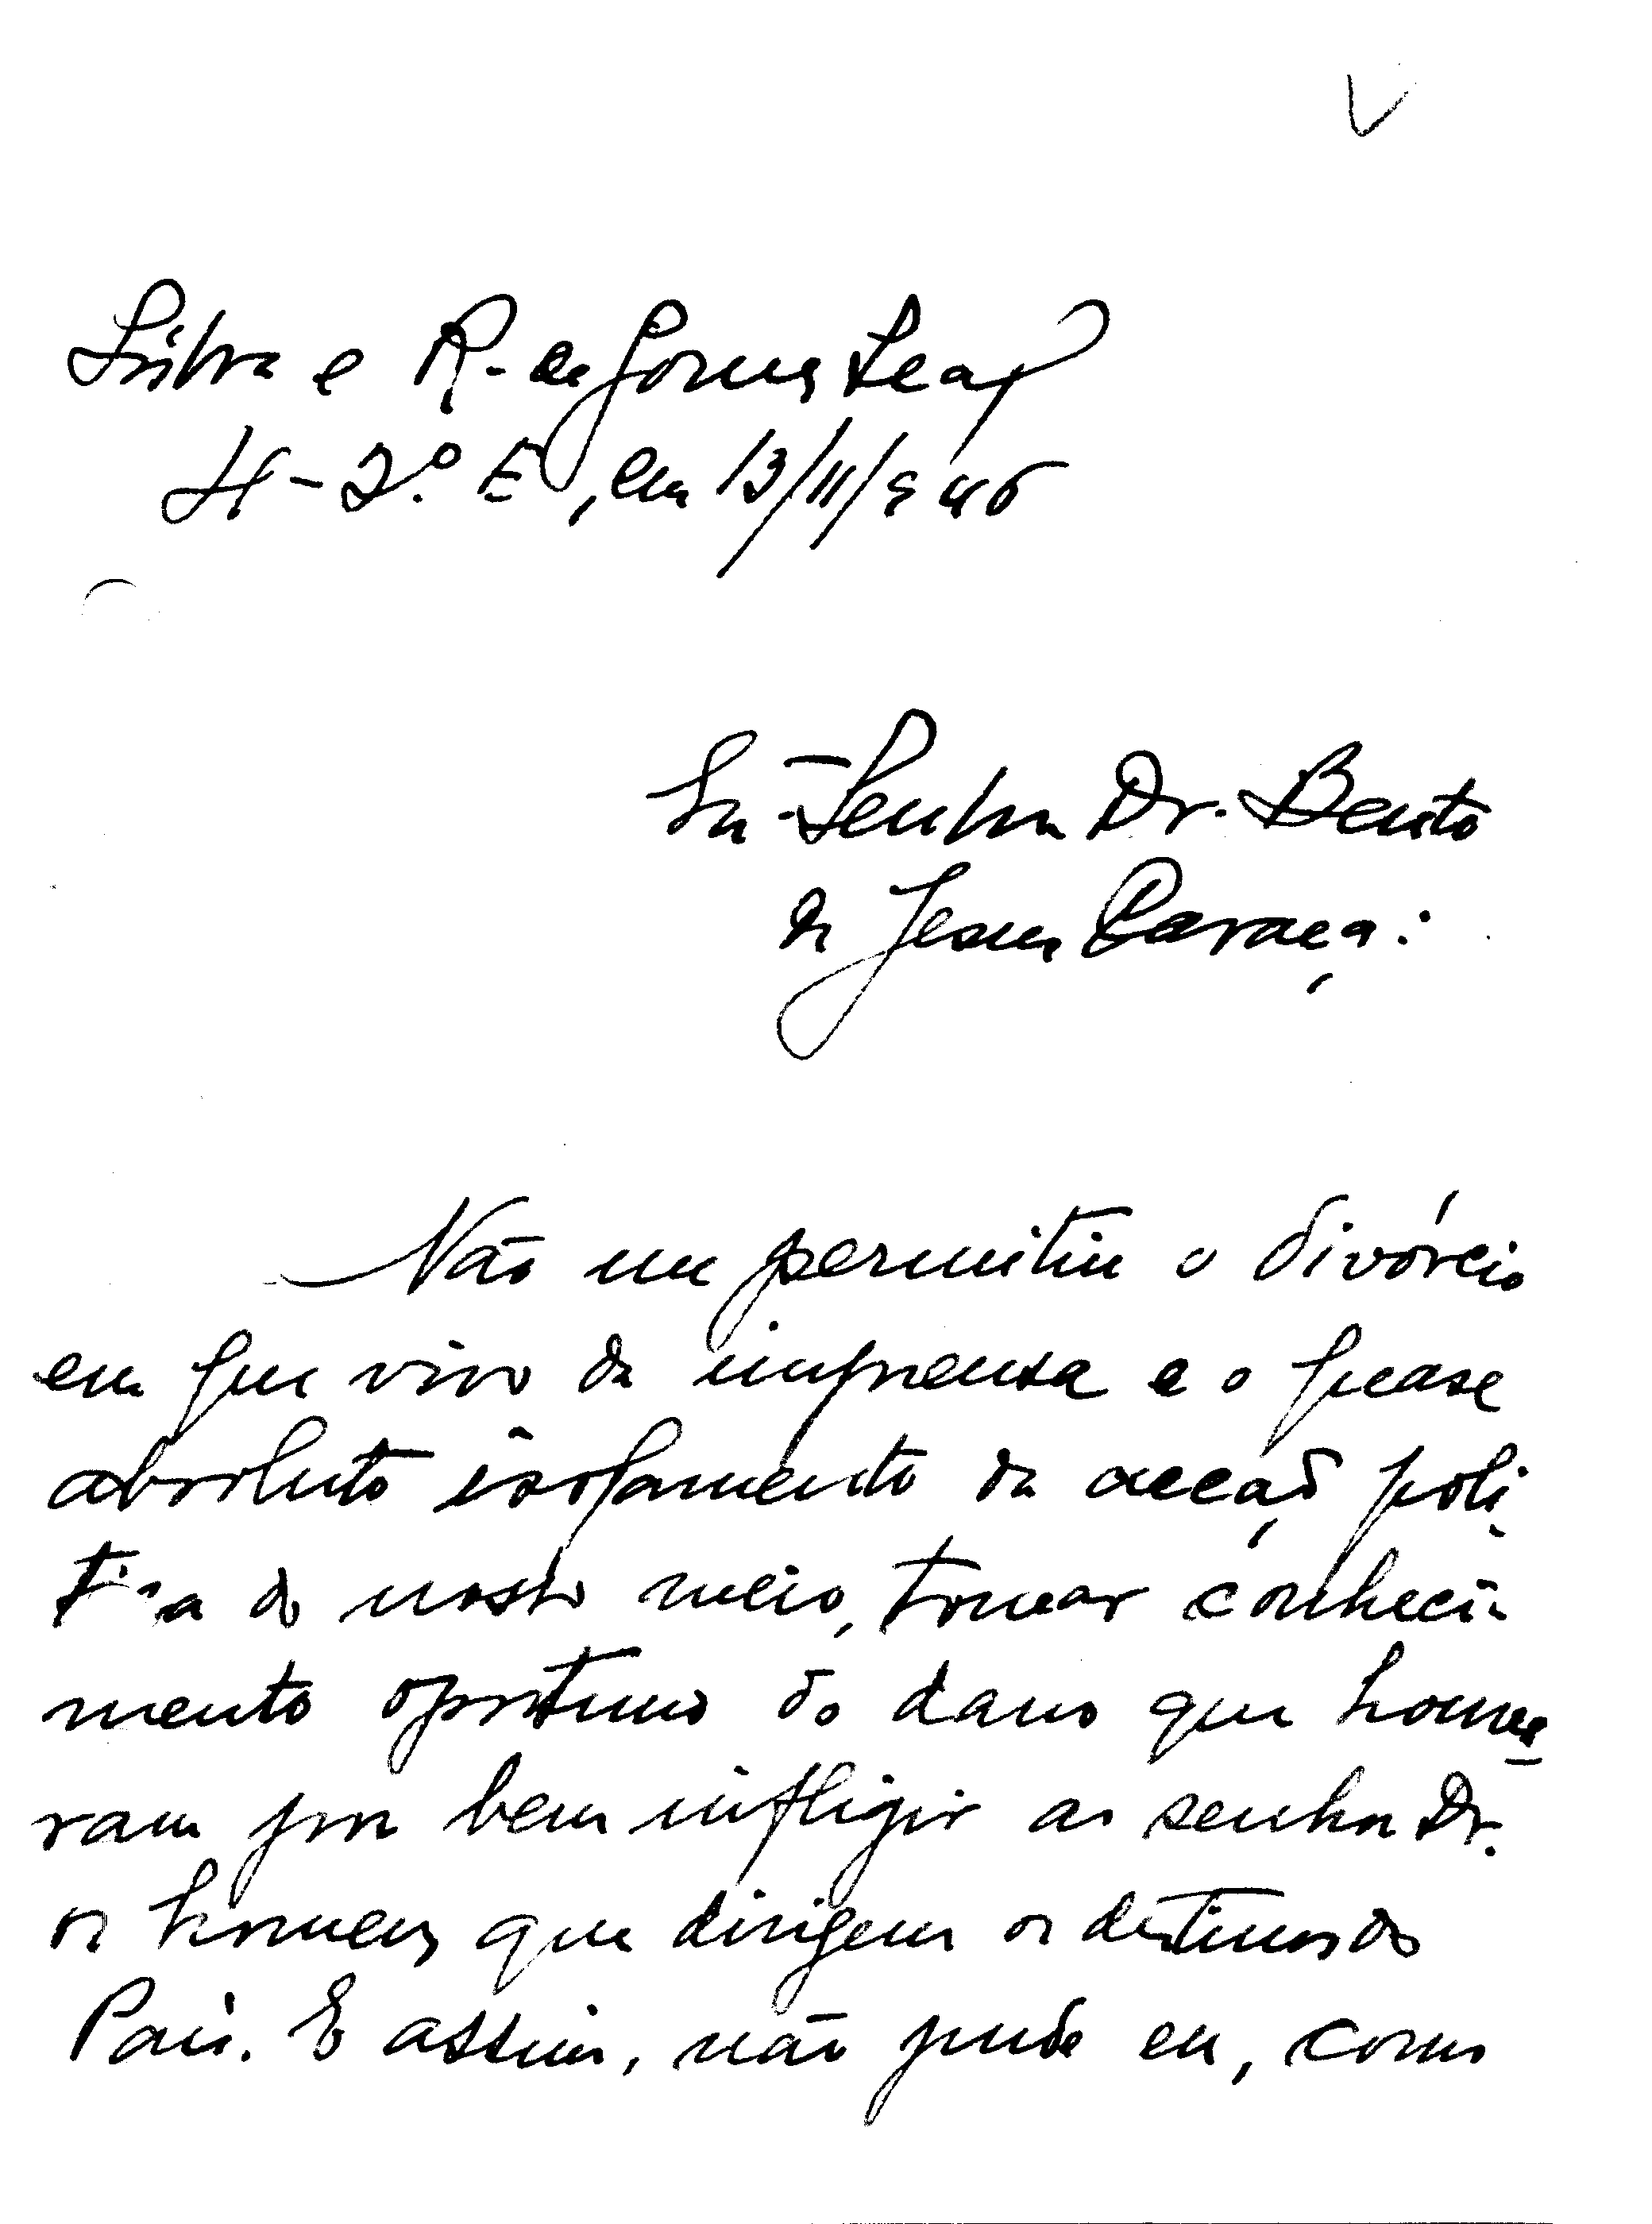 Lisboa e R. de Gomes Leal
4-2.º E, em 13/11/946
Senhor Dr. Bento
de Jesus Caraça:
Não me permitiu o divórcio
em que vivo da imprensa e o quase
absoluto isolamento da acção polí-
tica do nosso meio, tomar conheci-
mento oportuno do dano que houve-
ram por bem infligir ao senhor Dr.
os homens que dirigem os destinos do
País. E assim, não pude eu, como